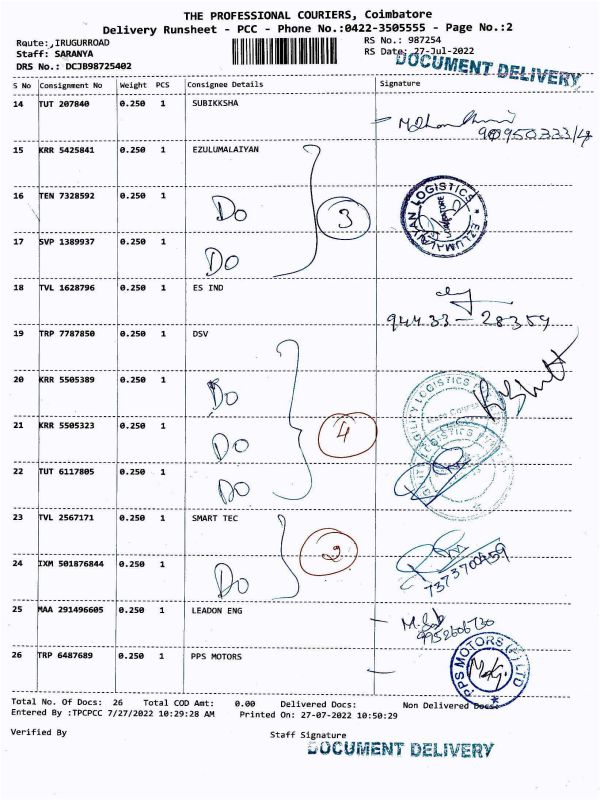 THE PROFESSIONAL COURIERS, Coimbatore
Delivery Runsheet - PCC - Phone No.:0422-3505555 - Page No.:2
Route:,IRUGURROAD RS No.: 987254
Staff: SARANYA RS Date: 27-Jul-2022
DRS No.: DCJB98725402 DOCUMENT DELIVERY
S No Consignment No Weight PCS Consignee Details Signature
14 TUT 207840 0.250 1 SUBIKKSHA
15 KRR 5425841 0.250 1 EZULUMALAIYAN
16 TEN 7328592 0.250 1 Do 3 EZLUMALAIYAN LOGISTICS
17 SVP 1389937 0.250 1 Do
18 TVL 1628796 0.250 1 ES IND
94433-28354
19 TRP 7787850 0.250 1 DSV
20 KRR 5505389 0.250 1 Do
21 KRR 5505323 0.250 1 Do 4
22 TUT 6117805 0.250 1 Do
23 TVL 2567171 0.250 1 SMART TEC
2
24 IXM 501876844 0.250 1 Do
7373700459
25 MAA 291496605 0.250 1 LEADON ENG
9952606730
26 TRP 6487689 0.250 1 PPS MOTORS PPS MOTORS (P) LTD
Total No. Of Docs: 26 Total COD Amt: 0.00 Delivered Docs: Non Delivered Docs:
Entered By :TPCPCC 7/27/2022 10:29:28 AM Printed On: 27-07-2022 10:50:29
Verified By Staff Signature
DOCUMENT DELIVERY